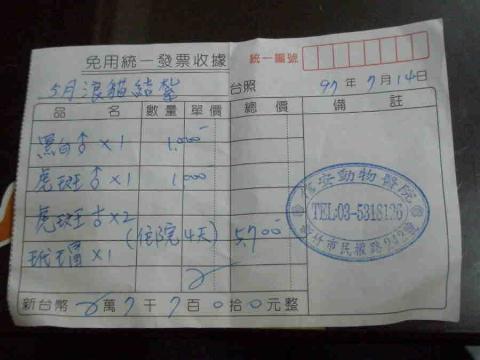 免用統一發票收據
統一編號
5月浪貓結紮 台照 97年7月14日
品名 數量 單價 總價 備註
黑白♂×1 1,000
虎斑♂×1 1,000
虎斑♂×2
(住院4天) 5,700
玳瑁×1
安動物醫院
TEL:03-5318126
新竹市民權路
新台幣 萬7千7百0拾0元整